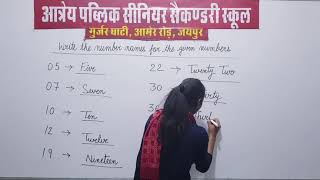 आत्रेय पब्लिक सीनियर सैकण्डरी स्कूल
गुर्जर घाटी, आमेर रोड़, जयपुर
Write the number name for the given numbers
05 → Five
07 → Seven
10 → Ten
12 → Twelve
19 → Nineteen
22 → Twenty Two
30